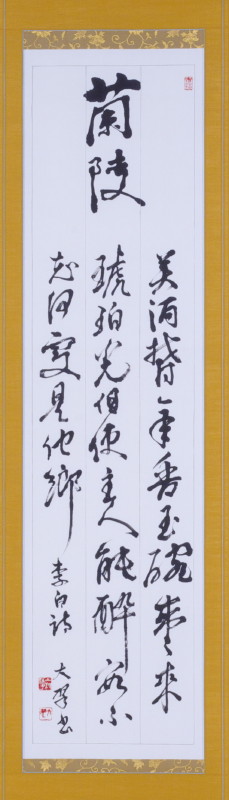 蘭陵
美酒鬱金香玉碗盛来
琥珀光但使主人能酔客不
知何處是他鄉
李白詩
大 書